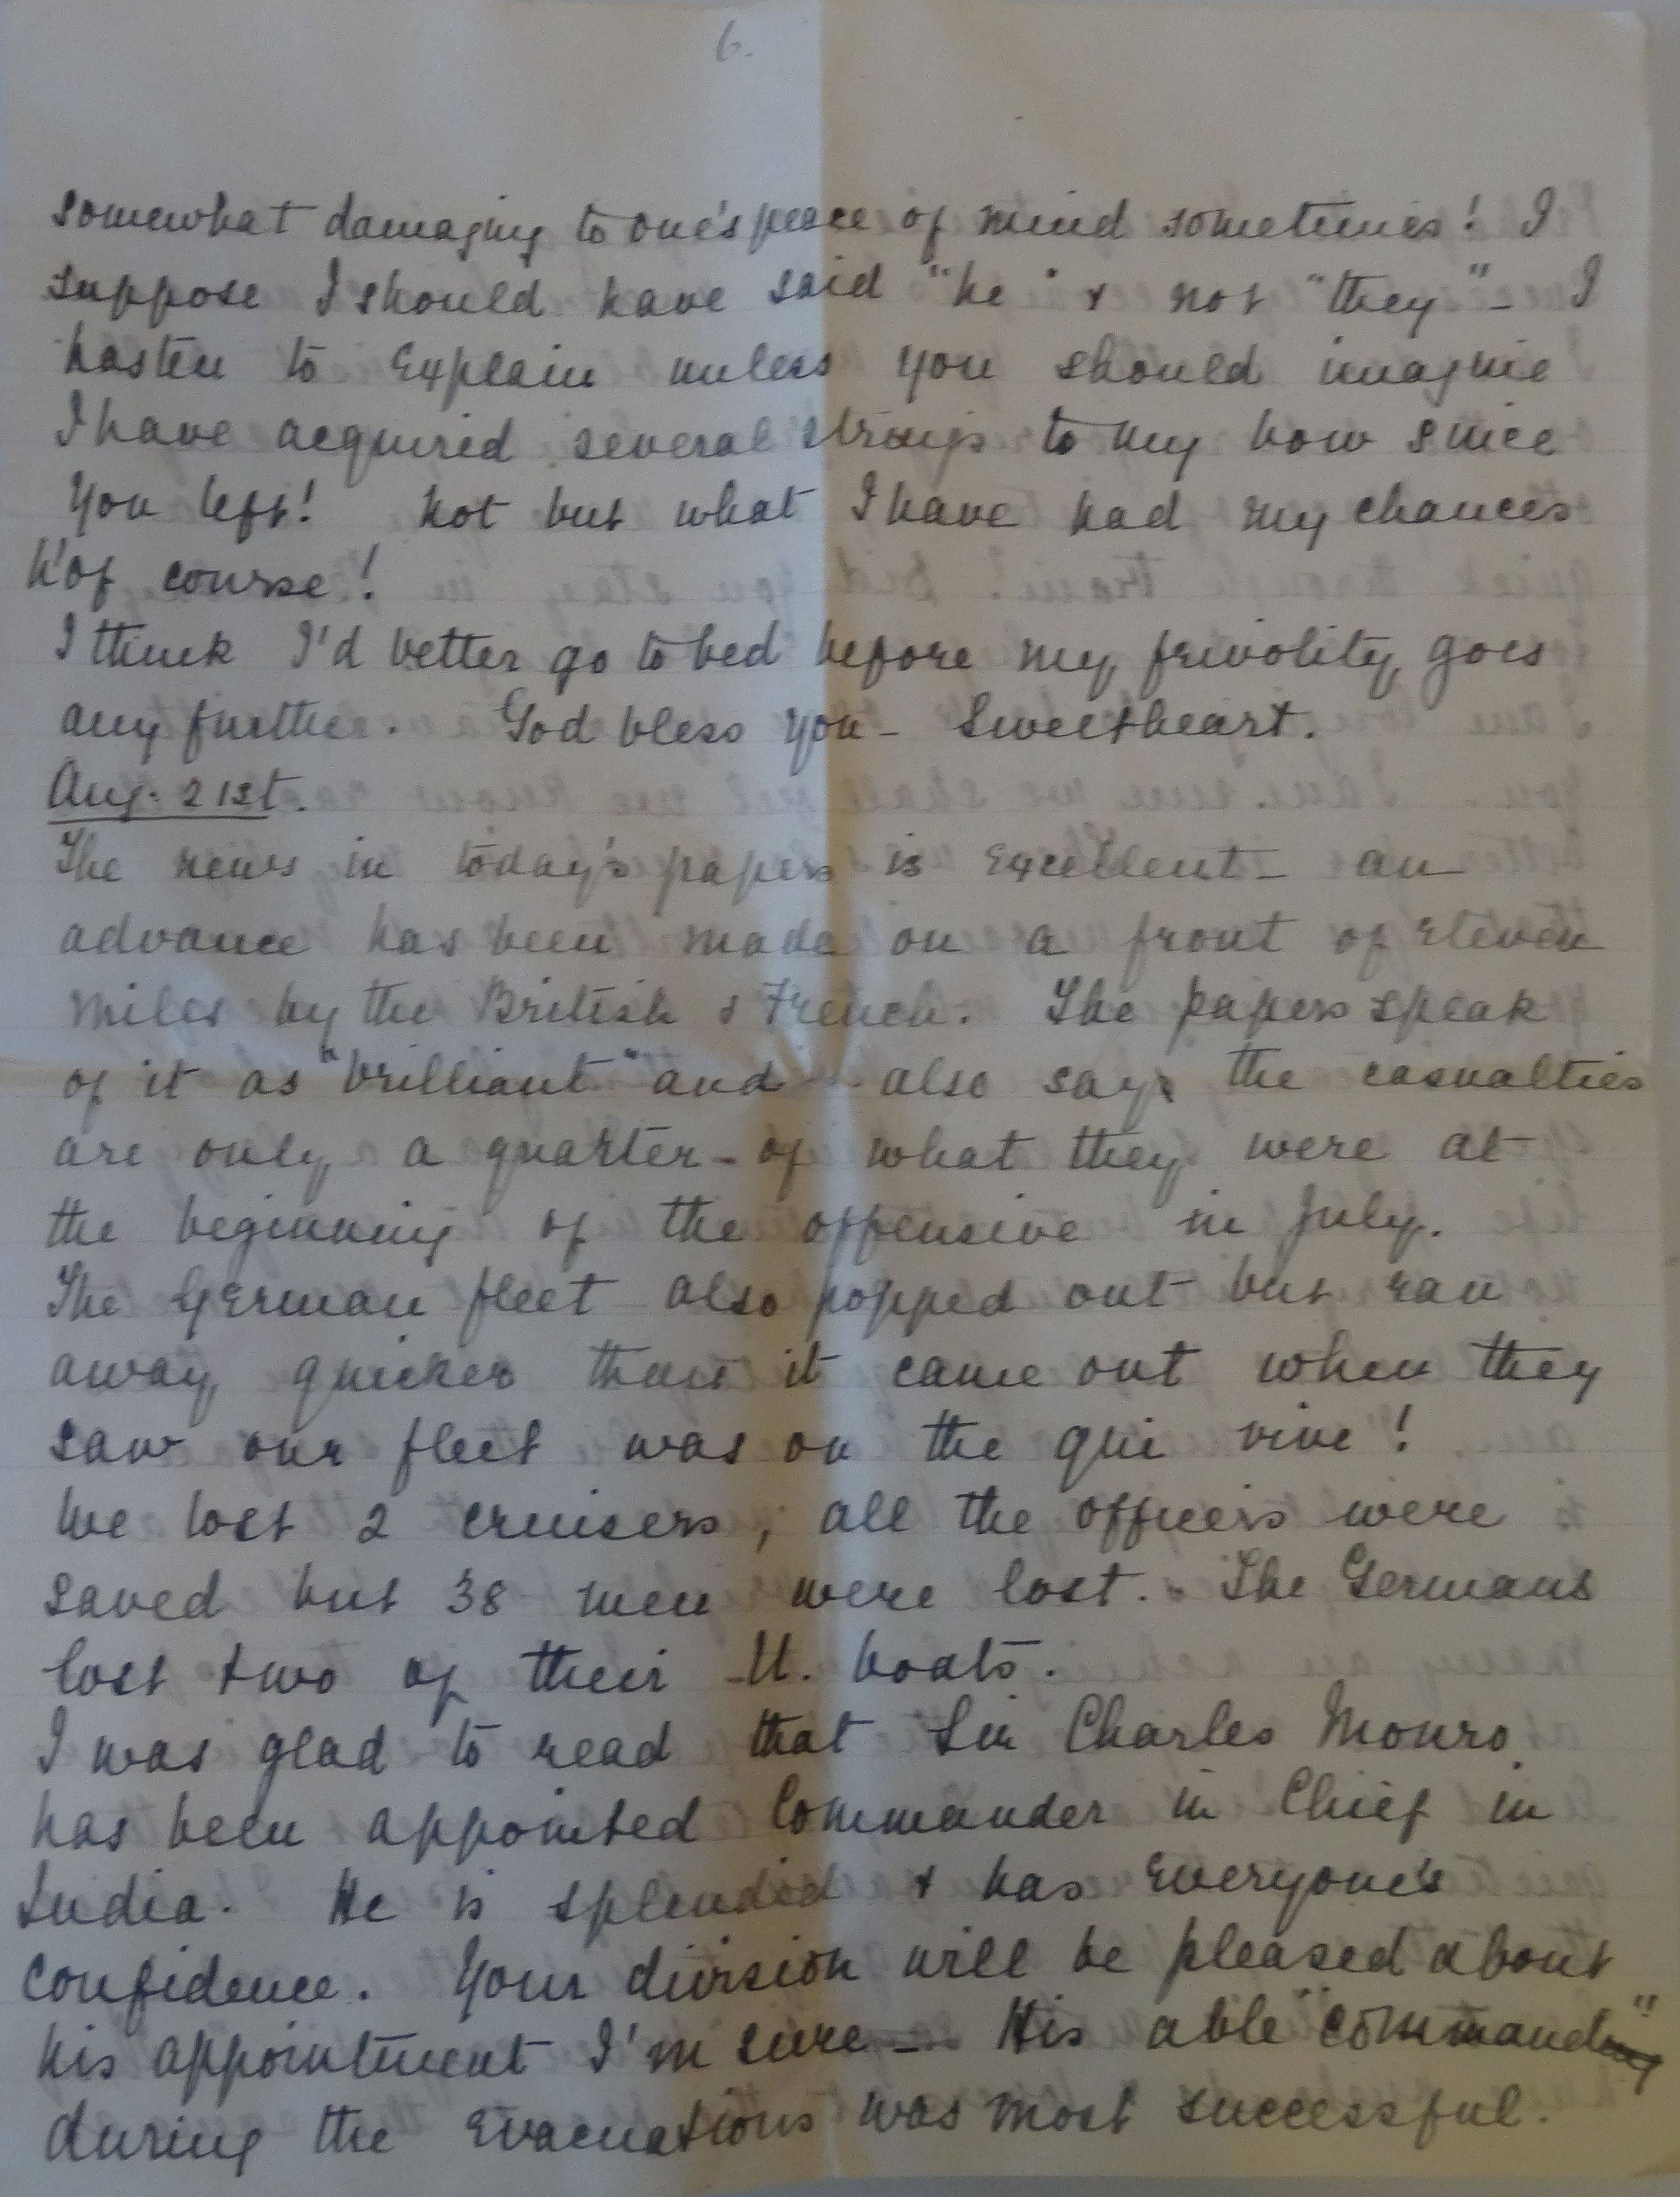 6.
somewhat damaging to one's peace of mind sometimes! I
suppose I should have said "he" & not "they" - I
hasten to explain unless you should imagine
I have acquired several strings to my bow since
you left! Not but what I have had my chances
h'of course!
I think I'd better go to bed before my frivolity goes
any further. God bless you - Sweetheart.
Aug. 21st.
The news in today's papers is excellent - an
advance has been made on a front of eleven
miles by the British & French. The papers speak
of it as "brilliant" and also say the casualties
are only a quarter - of what they were at
the beginning of the offensive in July.
The German fleet also popped out but ran
away quicker than it came out when they
saw our fleet was on the qui vive!
We lost 2 cruisers, all the officers were
saved but 38 men were lost. - The Germans
lost two of their U. boats.
I was glad to read that Sir Charles Monro
has been appointed Commander in Chief in
India. He is splendid & has everyone's
confidence. Your division will be pleased about
his appointment I'm sure - His able "command"
during the evacuations was most successful.